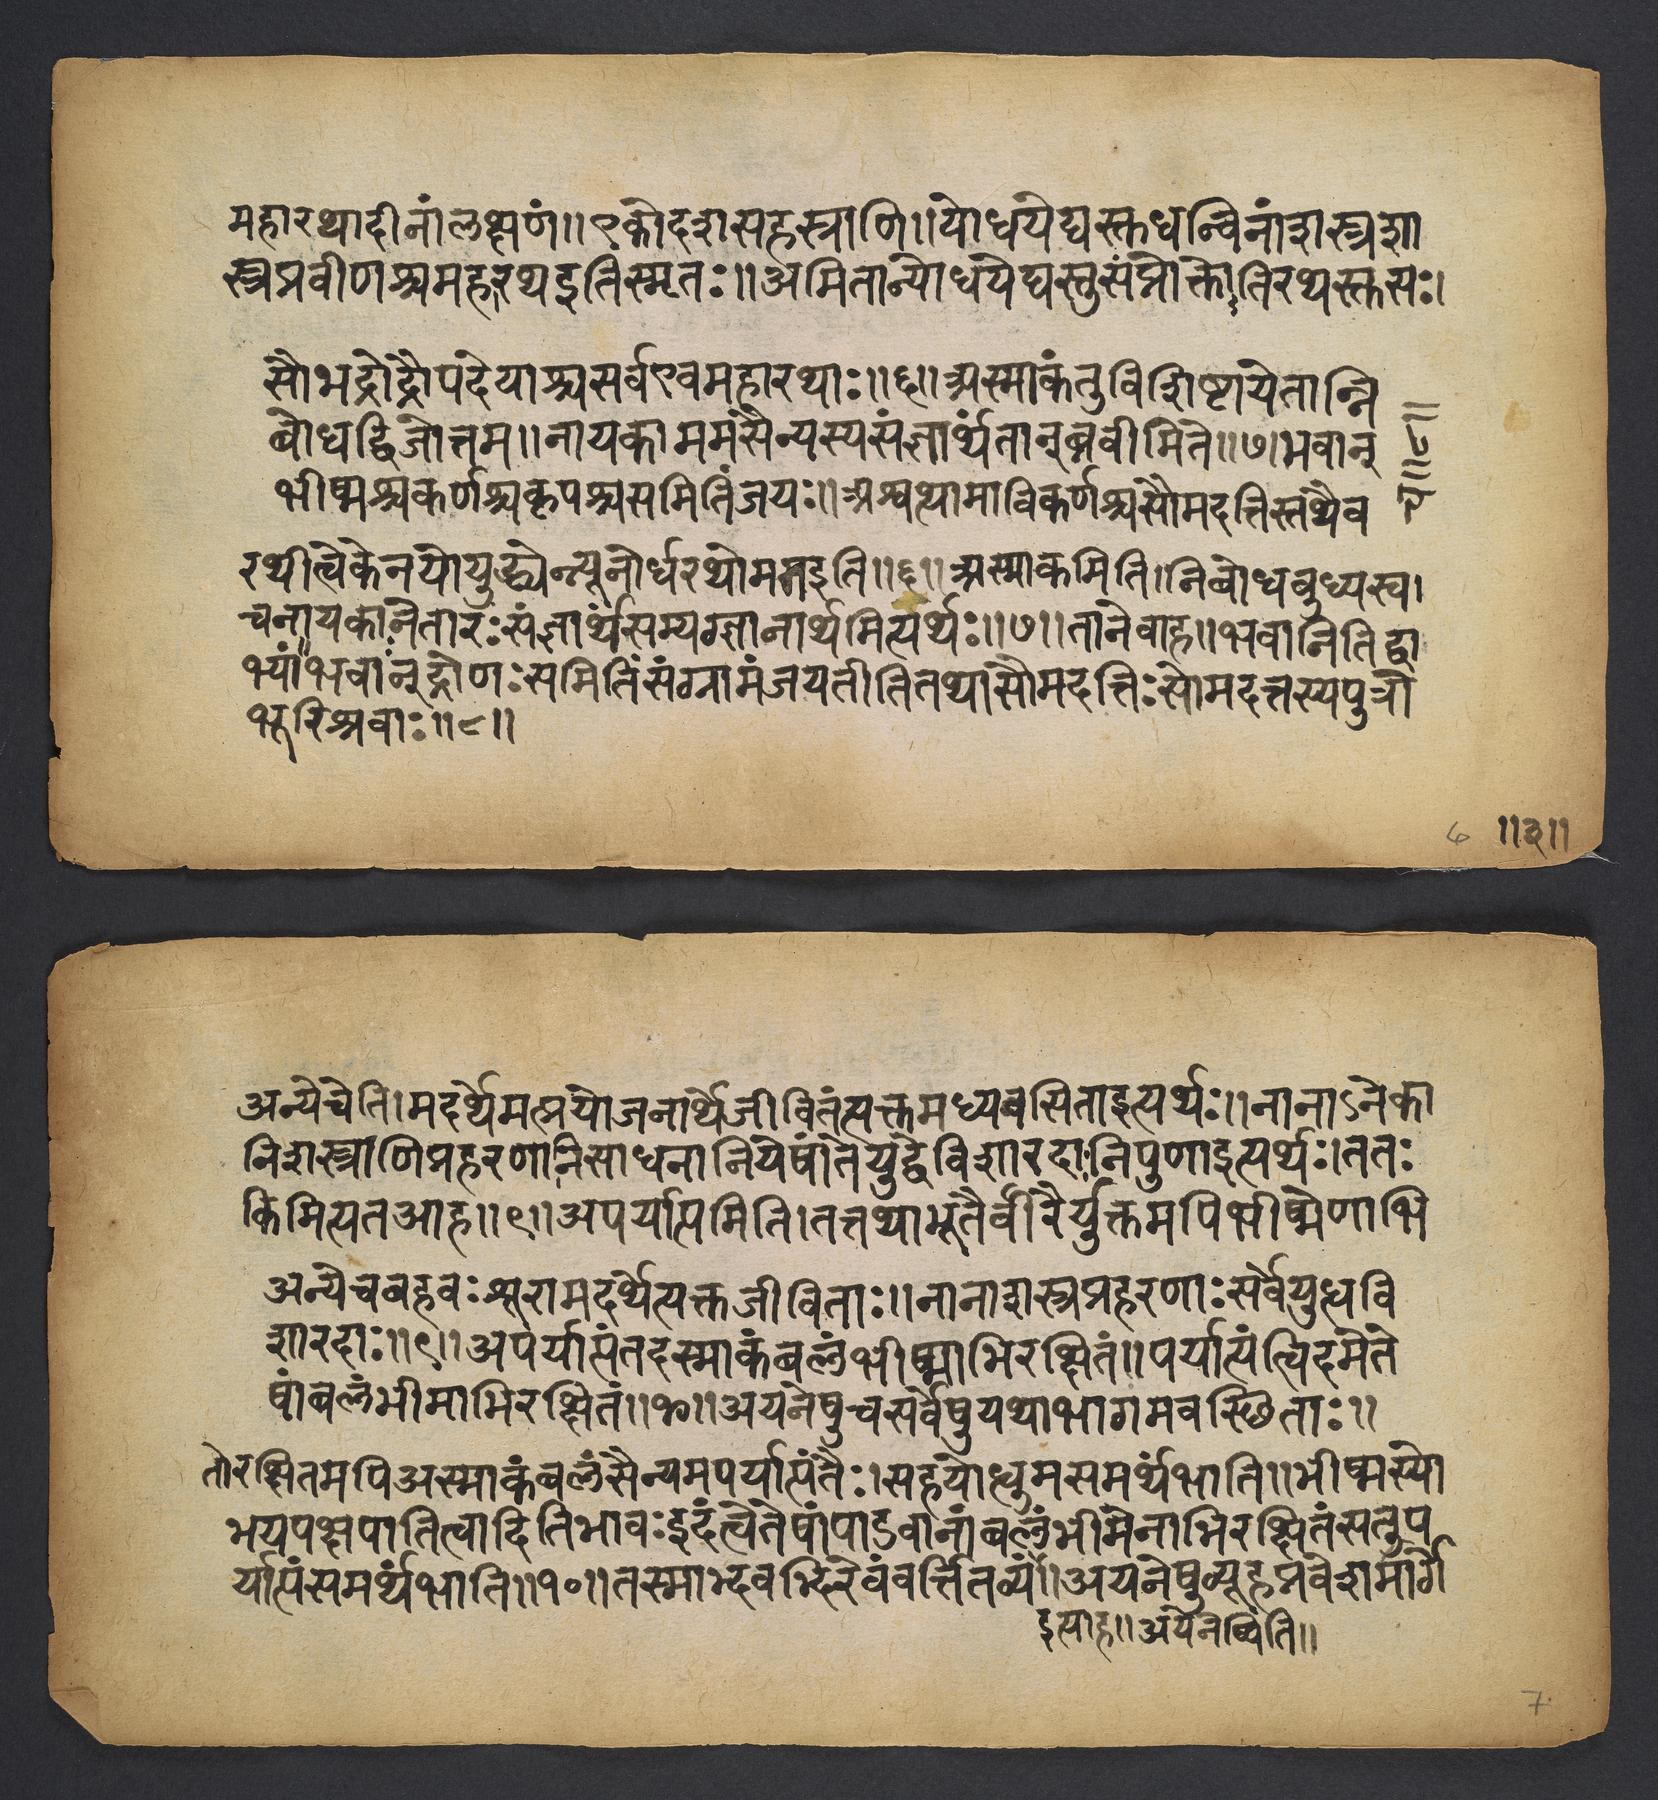 महारथादीनांलक्षणं॥एकोदशसहस्त्राणि॥योधयेद्यस्तधन्विनांशस्त्रशा
स्त्रप्रवीणश्चमहारथइतिस्मृतः॥अमितान्योधयेद्यस्तुसंप्रोक्तोतिरथस्तसः।
सौभद्रोद्रौपदेयाश्चसर्वएवमहारथाः॥६॥अस्माकंतुविशिष्टायेतान्नि
बोधद्विजोत्तम॥नायकाममसैन्यस्यसंज्ञार्थंतान्ब्रवीमिते॥७॥भवान्
भीष्मश्चकर्णश्चकृपश्चसमितिंजयः॥अश्वत्थामाविकर्णश्चसौमदत्तिस्तथैव
च॥८॥
रथीत्वेकेनयोयुद्ध्येन्न्यूनोर्धरथोमतइति॥६॥अस्माकमिति।निबोधबुध्यस्व।
नायकानेतारःसंज्ञार्थंसम्यग्ज्ञानार्थमित्यर्थः॥७॥तानेवाह॥भवानितिद्वा
भ्यां॥भवान्द्रोणःसमितिंसंग्रामंजयतीतितथासौमदत्तिःसोमदत्तस्यपुत्रो
भूरिश्रवाः॥८॥
6 ॥३॥
अन्येचेति।मदर्थेमत्प्रयोजनार्थेजीवितंत्यक्तमध्यवसिताइत्यर्थः॥नानाऽनेका
निशस्त्राणिप्रहरणानिसाधनानियेषांतेयुद्धेविशारदानिपुणाइत्यर्थः।ततः
किमित्यतआह॥९॥अपर्याप्तमिति।तत्तथाभूतैर्वीरैर्युक्तमपिभीष्मेणाभि
अन्येचबहवःशूरामदर्थेत्यक्तजीविताः॥नानाशस्त्रप्रहरणाःसर्वेयुध्धवि
शारदाः॥९॥अपर्याप्तंतदस्माकंबलंभीष्माभिरक्षितं॥पर्याप्तंत्विदमेते
षांबलंभीमाभिरक्षितं॥१०॥अयनेषुचसर्वेषुयथाभागमवस्थिताः॥
तोरक्षितमपिअस्माकंबलंसैन्यमपर्याप्तंतैः।सहयोध्धुमसमर्थंभाति॥भीष्मस्यो
भयपक्षपातित्वादितिभावःइदंत्वेतेषांपांडवानांबलंभीमेनाभिरक्षितंसत्तुप
र्याप्तंसमर्थंभाति॥१०॥तस्माद्भवद्भिरेवंवर्त्तितव्यं॥अयनेषुव्यूहप्रवेशमार्गे
इत्याह॥अयनेष्विति॥
7